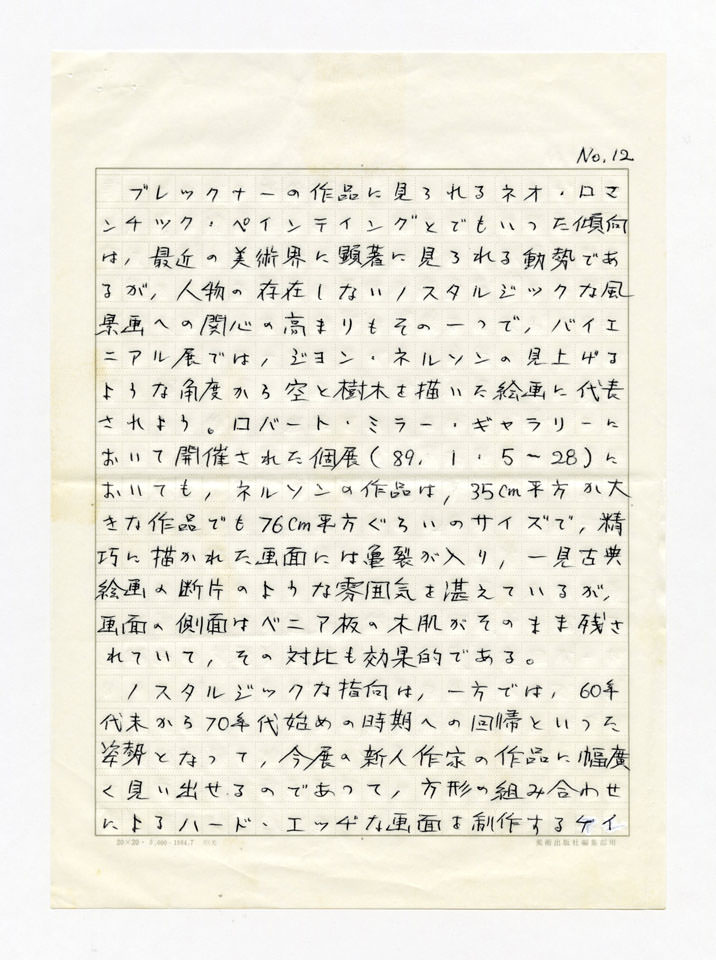 No.12
ブレックナーの作品に見られるネオ・ロマ
ンチック・ペインティングとでもいった傾向
は、最近の美術界に顕著に見られる動勢であ
るが、人物の存在しないノスタルジックな風
景画への関心の高まりもその一つで、バイエ
ニアル展では、ジョン・ネルソンの見上げる
ような角度から空と樹木を描いた絵画に代表
されよう。ロバート・ミラー・ギャラリーに
おいて開催された個展(89.1.5〜28)に
おいても、ネルソンの作品は、35cm平方か大
きな作品でも76cm平方ぐらいのサイズで、精
巧に描かれた画面には亀裂が入り、一見古典
絵画の断片のような雰囲気を湛えているが、
画面の側面はベニア板の木肌がそのまま残さ
れていて、その対比も効果的である。
ノスタルジックな指向は、一方では、60年
代末から70年代始めの時期への回帰といった
姿勢となって、今展の新人作家の作品に幅廣
く見い出せるのであって、方形の組み合わせ
によるハード・エッヂな画面を制作するケイ
20×20・ 1984.7
美術出版社編集部用